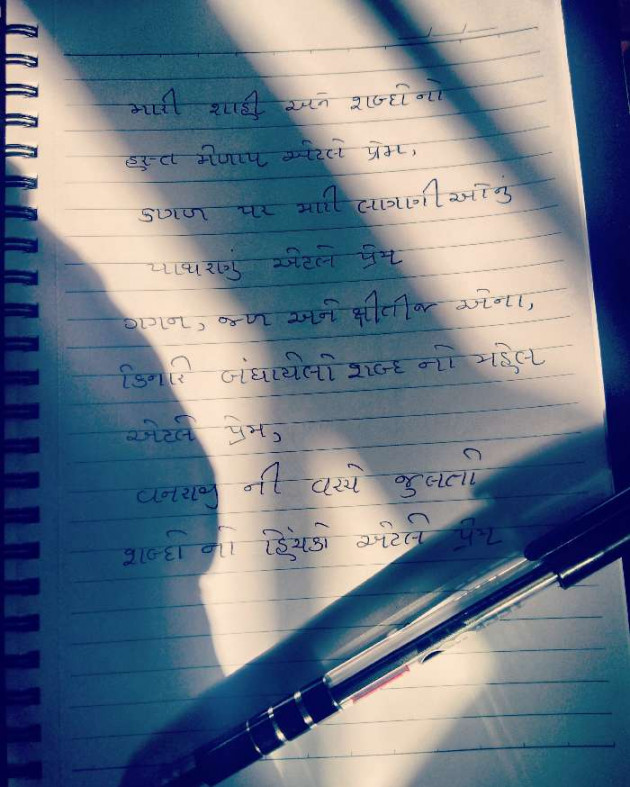 મારી શાહી અને શબ્દોનો
હસ્ત મેળાપ એટલે પ્રેમ,
કાગળ પર મારી લાગાણીઓનું
પાથરણું એટલે પ્રેમ
ગગન, જળ અને ક્ષીતીજ એના,
કિનારે બંધાયેલો શબ્દ નો મહેલ
એટલે પ્રેમ,
વનરાજી ની વચ્ચે જુલતો
શબ્દો નો હિંચકો એટલે પ્રેમ